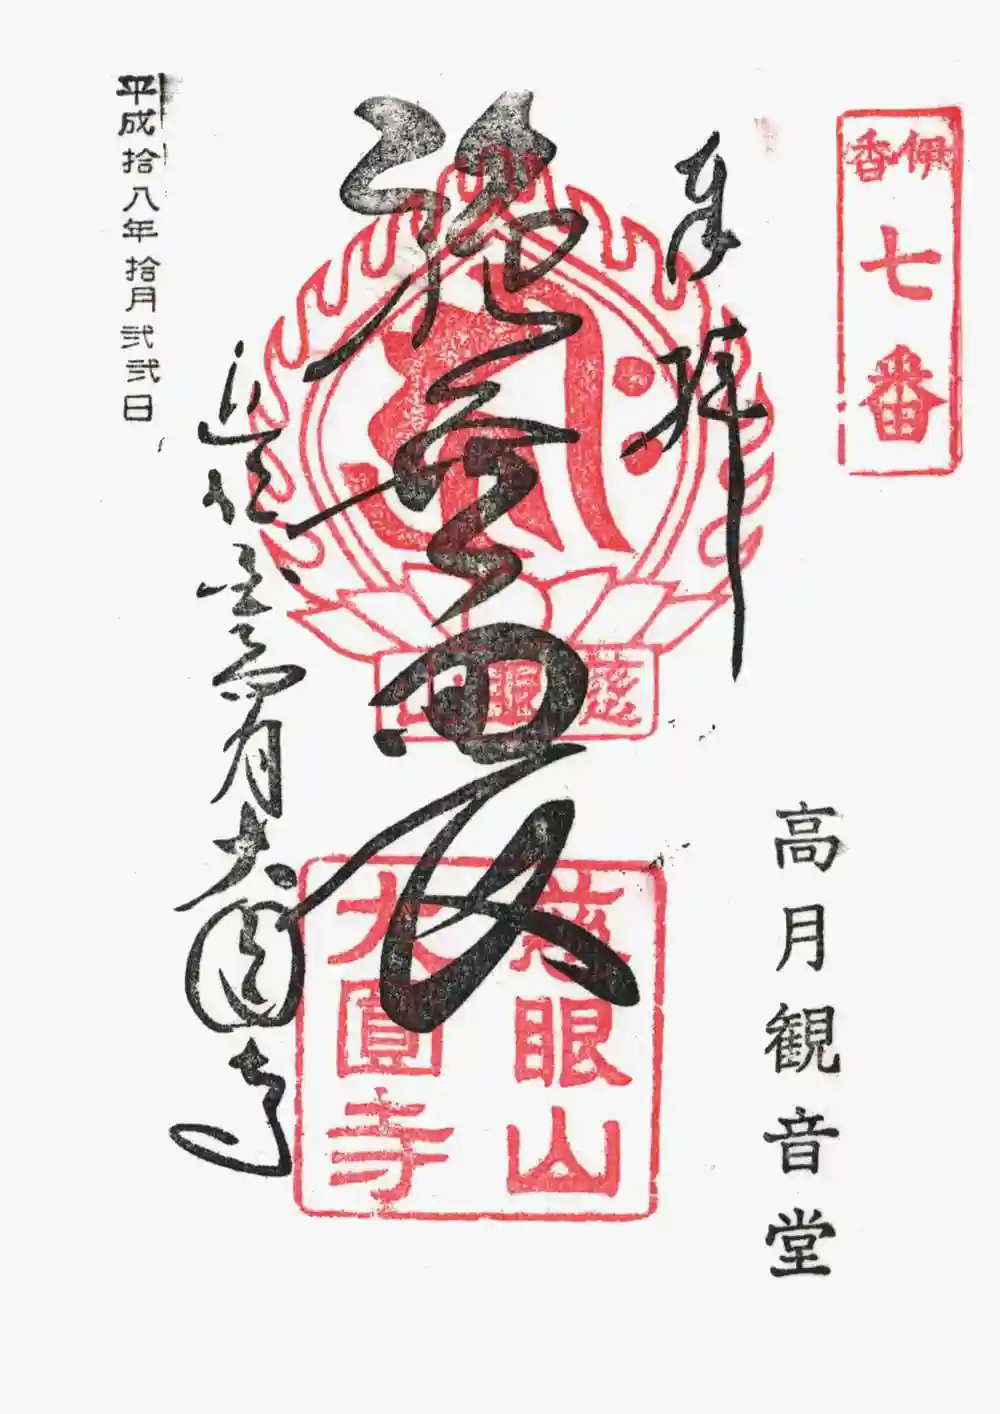 伊香
七番
奉拝
高月観音堂
施無畏
慈眼山
慈眼山
大圓寺
近江 高月大圓寺
平成拾八年拾月弐弐日